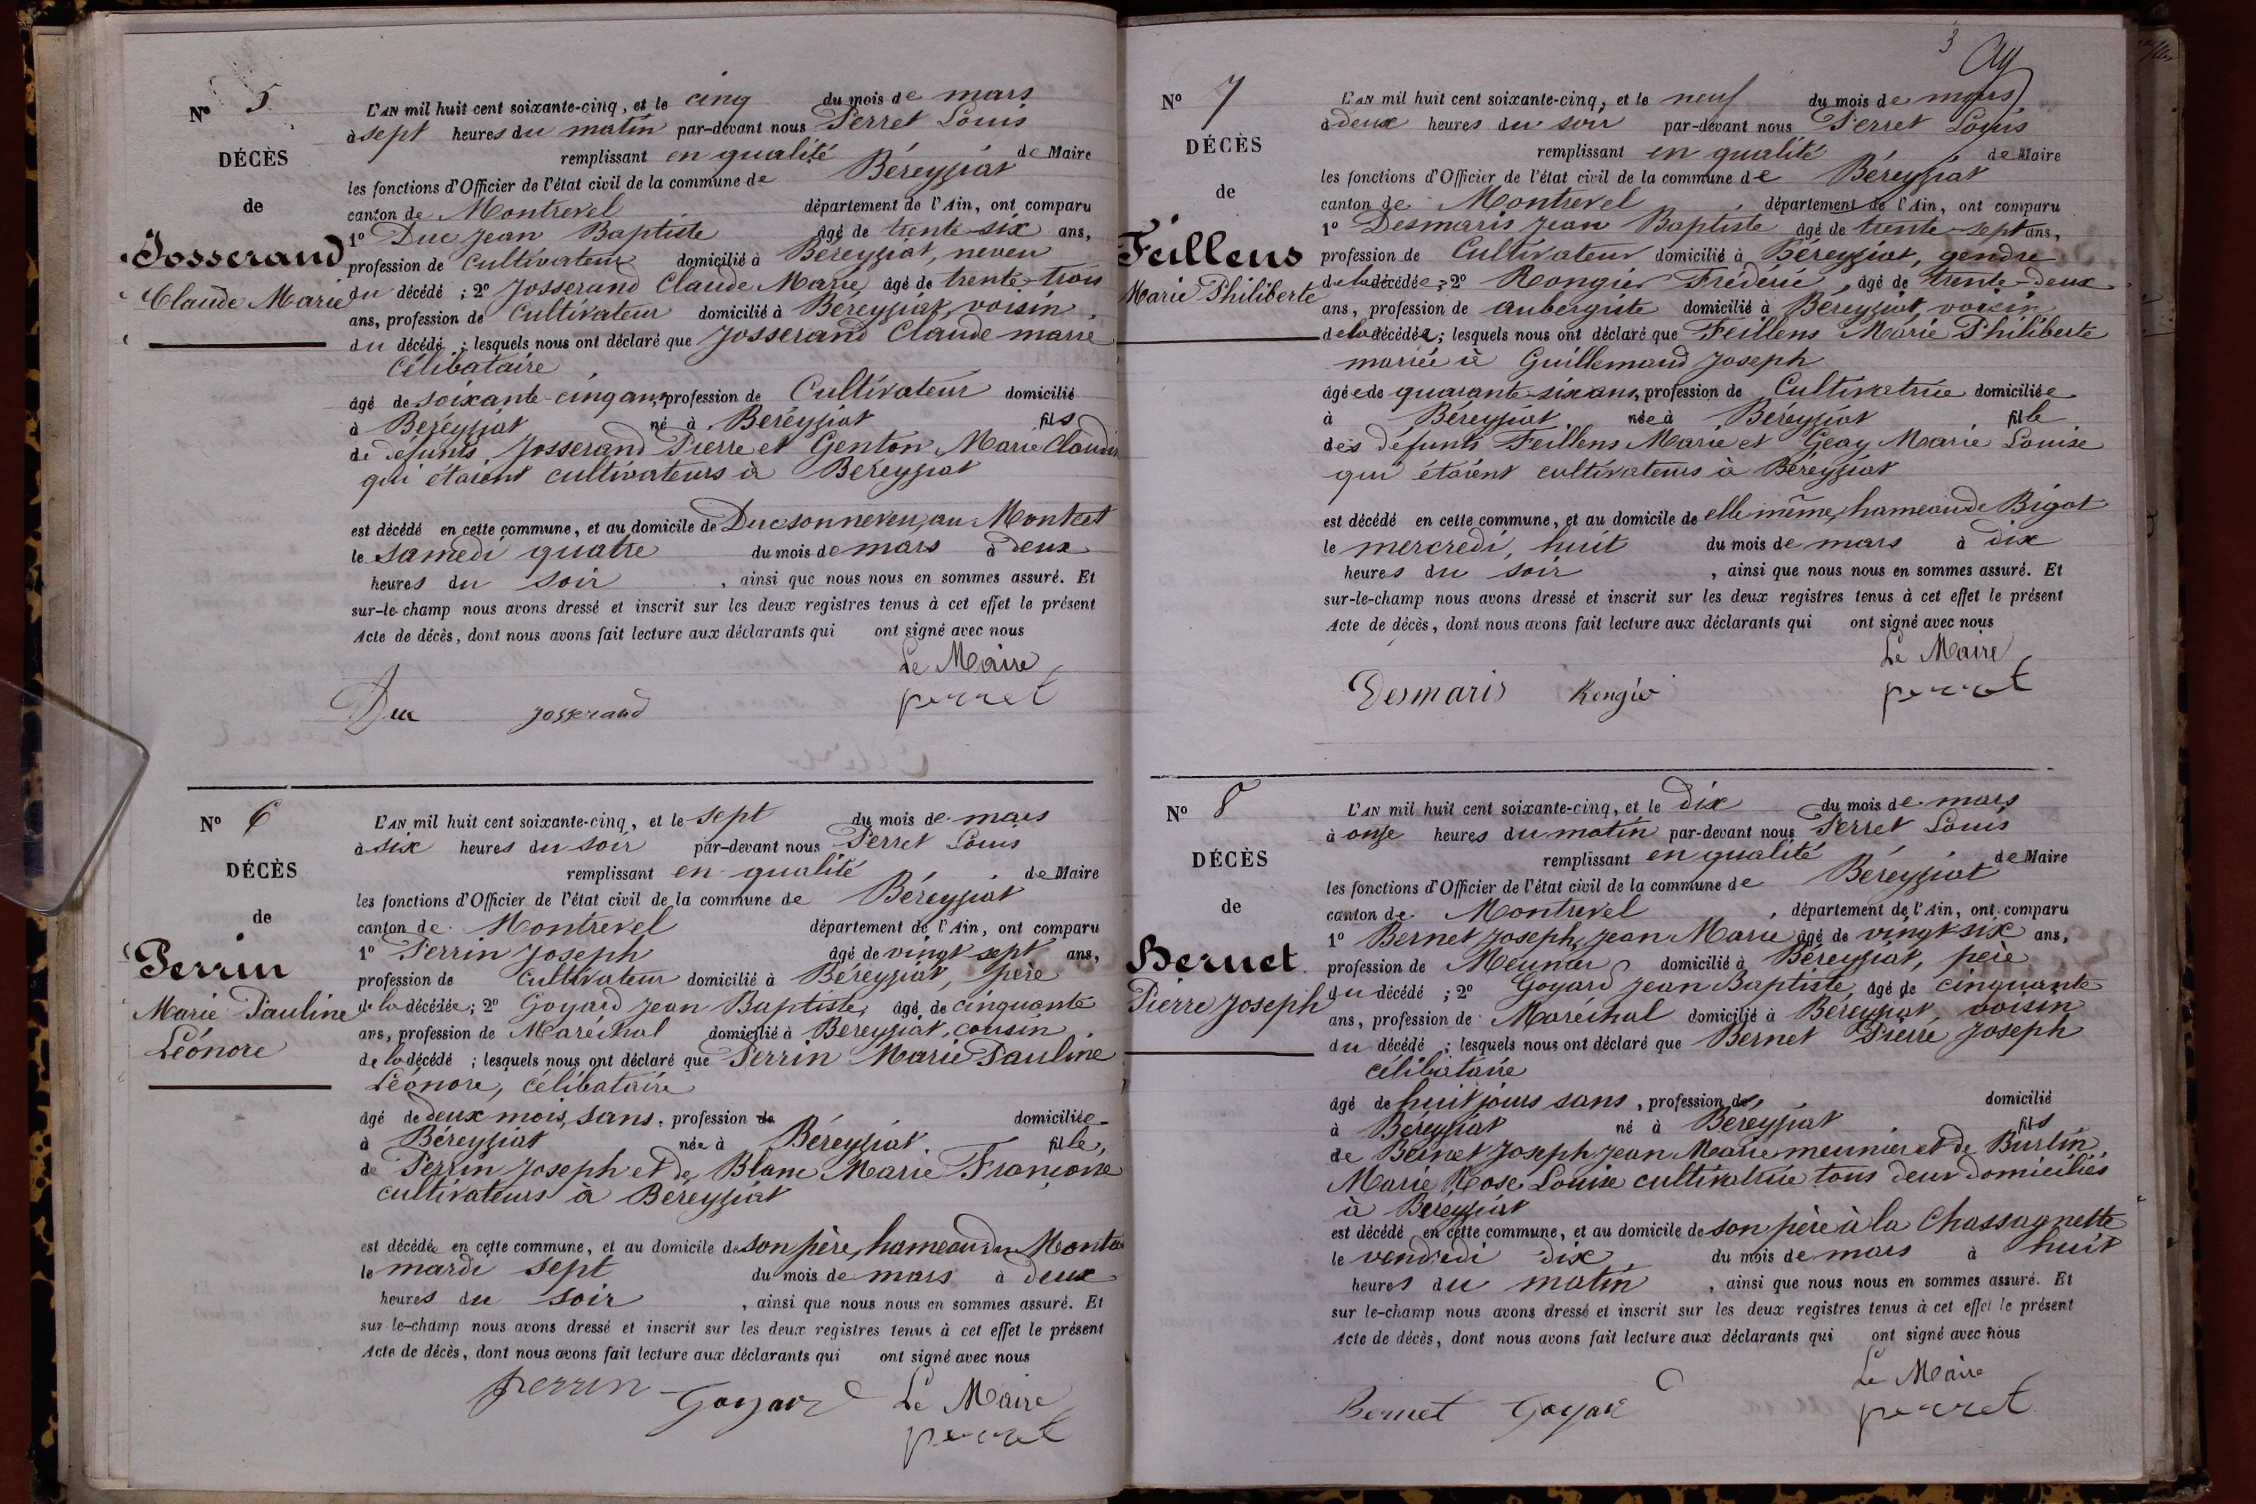 N° 5
DÉCÈS
de
Josserand
Claude Marie
L'AN mil huit cent soixante-cinq, et le cinq du mois de mars
à sept heures du matin par-devant nous Perret Louis
remplissant en qualité de Maire
les fonctions d'Officier de l'état civil de la commune de Béreyziat
canton de Montrevel département de l'Ain, ont comparu
1° Duc Jean Baptiste âgé de trente-six ans,
profession de Cultivateur domicilié à Béreyziat, neveu
du décédé ; 2° Josserand Claude Marie âgé de trente-trois
ans, profession de Cultivateur domicilié à Béreyziat, voisin
du décédé ; lesquels nous ont déclaré que Josserand Claude marie
Célibataire
âgé de soixante-cinq ans, profession de Cultivateur domicilié
à Béréyziat né à Beréyziat fils
de défunts Josserand Pierre et Genton Marie Claudine
qui étaient cultivateurs à Bereyziat
est décédé en cette commune, et au domicile de Duc son neveu, au Montcet
le samedi quatre du mois de mars à deux
heures du soir , ainsi que nous nous en sommes assuré. Et
sur-le-champ nous avons dressé et inscrit sur les deux registres tenus à cet effet le présent
Acte de décès, dont nous avons fait lecture aux déclarants qui ont signé avec nous
Le Maire
Duc Josserand perret
N° 6
DÉCÈS
de
Perrin
Marie Pauline
Léonore
L'AN mil huit cent soixante-cinq, et le sept du mois de mars
à six heures du soir par-devant nous Perret Louis
remplissant en qualité de Maire
les fonctions d'Officier de l'état civil de la commune de Béreyziat
canton de Montrevel département de l'Ain, ont comparu
1° Perrin Joseph âgé de vingt sept ans,
profession de Cultivateur domicilié à Béreyziat, père
de la décédée ; 2° Goyard Jean Baptiste, âgé de cinquante
ans, profession de Maréchal domicilié à Béreyziat, cousin
de la décédé ; lesquels nous ont déclaré que Perrin Marie Pauline
Léonore, célibataire
âgé de deux mois, sans, profession de domiciliée
à Béreyziat née à Béreyziat fille,
de Perrin Joseph et de Blanc Marie Françoise
cultivateurs à Béreyziat
est décédée en cette commune, et au domicile de son père, hameau du
le mardi sept du mois de mars à deux
heures du soir , ainsi que nous nous en sommes assuré. Et
sur-le-champ nous avons dressé et inscrit sur les deux registres tenus à cet effet le présent
Acte de décès, dont nous avons fait lecture aux déclarants qui ont signé avec nous
perrin Goyard Le Maire
perret
3
N° 7
DÉCÈS
de
Feillens
Marie Philiberte
L'AN mil huit cent soixante-cinq, et le neuf du mois de mars
à deux heures du soir par-devant nous Perret Louis
remplissant en qualité de Maire
les fonctions d'Officier de l'état civil de la commune de Béreyziat
canton de Montrevel département de l'Ain, ont comparu
1° Desmaris Jean Baptiste âgé de trente-sept ans,
profession de Cultivateur domicilié à Béreyziat, gendre
de la décédée ; 2° Rongier Frédéric, âgé de trente-deux
ans, profession de aubergiste domicilié à Béreyziat, voisin
de la décédée ; lesquels nous ont déclaré que Feillens Marie Philiberte
mariée à Guillemaud Joseph
âgée de quarante-six ans, profession de Cultivatrice domiciliée
à Béreyziat née à Béreyziat fille
des défunts Feillens Marie et Geay Marie Louise
qui étaient cultivateurs à Béreyziat
est décédé en cette commune, et au domicile de elle même, hameau de Bigot
le mercredi, huit du mois de mars à dix
heures du soir , ainsi que nous nous en sommes assuré. Et
sur-le-champ nous avons dressé et inscrit sur les deux registres tenus à cet effet le présent
Acte de décès, dont nous avons fait lecture aux déclarants qui ont signé avec nous
Le Maire
Desmaris Rongier perret
N° 8
DÉCÈS
de
Bernet
Pierre Joseph
L'AN mil huit cent soixante-cinq, et le dix du mois de mars
à onze heures du matin par-devant nous Perret Louis
remplissant en qualité de Maire
les fonctions d'Officier de l'état civil de la commune de Béreyziat
canton de Montrevel , département de l'Ain, ont comparu
1° Bernet Joseph, Jean Marie âgé de vingt six ans,
profession de Meunier domicilié à Béreyziat, père
du décédé ; 2° Goyard Jean Baptiste, âgé de cinquante
ans, profession de Maréchal domicilié à Béreyziat, voisin
du décédé ; lesquels nous ont déclaré que Bernet Pierre Joseph
célibataire
âgé de huit jours sans , profession de domicilié
à Béreyziat né à Béreyziat fils
de Bernet Joseph Jean Marie meunier et de Burlin
Marie Rose Louise cultivatrice tous deux domiciliés
à Béreyziat
est décédé en cette commune, et au domicile de son père à la Chassagnette
le vendredi dix du mois de mars à huit
heures du matin , ainsi que nous nous en sommes assuré. Et
sur le-champ nous avons dressé et inscrit sur les deux registres tenus à cet effet le présent
Acte de décès, dont nous avons fait lecture aux déclarants qui ont signé avec nous
Le Maire
Bernet Goyard perret